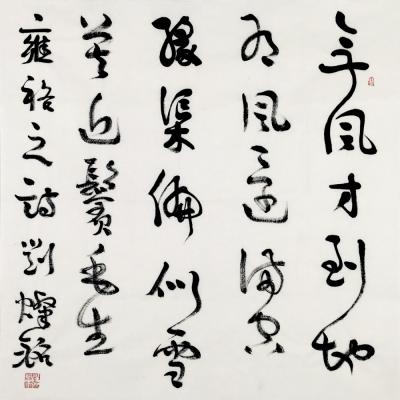 無風才到地
有風還滿空
緣渠偏似雪
莫近鬢毛生
雍裕之詩劉燦銘